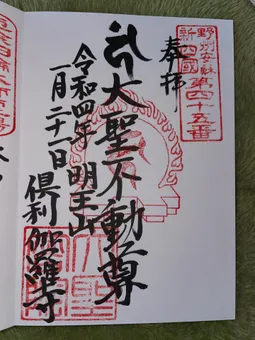 野州安蘇
新四國
第四十五番
奉拝
大聖不動尊
明王山
令和四年
一月二十一日
倶利伽羅寺